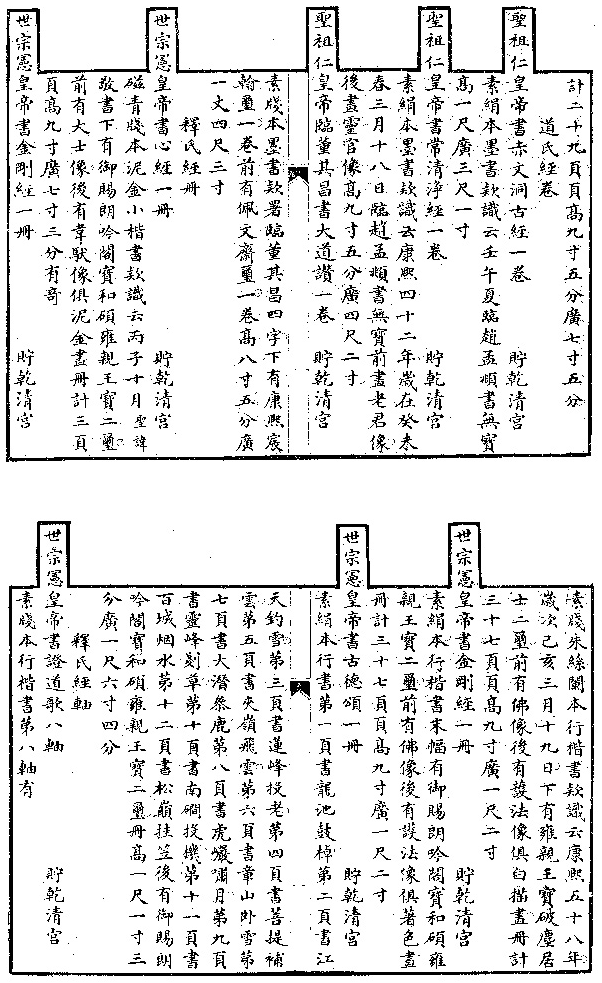 計二十九頁頁高九寸五分廣七寸五分
道氏經卷
聖祖仁皇帝書赤文洞古經一卷 貯乾清宮
素絹本墨書款識云壬午夏臨趙孟頫書無寶
高一尺廣三尺一寸
聖祖仁皇帝書常清淨經一卷 貯乾清宮
素絹本墨書款識云康熙四十二年歲在癸未
春三月十八日臨趙孟頫書無寶前畫老君像
後畫靈官像高九寸五分廣四尺二寸
聖祖仁皇帝臨董其昌書大道讚一卷 貯乾清宮
素牋本墨書款署臨董其昌四字下有康熙宸
翰璽一卷前有佩文齋璽一卷高八寸五分廣
一丈四尺三寸
釋氏經冊
世宗憲皇帝書心經一冊 貯乾清宮
磁青牋本泥金小楷書款識云丙子十月聖諱
敬書下有御賜朗吟閣寶和碩雍親王寶二璽
前有大士像後有韋馱像俱泥金畫冊計三頁
頁高九寸廣七寸三分有奇
世宗憲皇帝書金剛經一冊 貯乾清宮
素牋朱絲闌本行楷書款識云康熙五十八年
歲次己亥三月十九日下有雍親王寶破塵居
士二璽前有佛像後有護法像俱白描畫冊計
三十七頁頁高九寸廣一尺二寸
世宗憲皇帝書金剛經一冊 貯乾清宮
素絹本行楷書末幅有御賜朗吟閣寶和碩雍
親王寶二璽前有佛像後有護法像俱著色畫
冊計三十七頁頁高九寸廣一尺二寸
世宗憲皇帝書古德頌一冊 貯乾清宮
素絹本行書第一頁書龍池鼓棹第二頁書江
天釣雪第三頁書蓮峰投老第四頁書菩提補
雲第五頁書夾嶺飛雲第六頁書韋山卧雪第
七頁書大潛祭鹿第八頁書虎巖嘯月第九頁
書靈峰剗草第十頁書南磵投機第十一頁書
百城烟水第十二頁書松巔挂笠後有御賜朗
吟閣寶和碩雍親王寶二璽冊高一尺一寸三
分廣一尺六寸四分
釋氏經軸
世宗憲皇帝書證道歌八軸 貯乾清宮
素牋本行楷書第八軸有